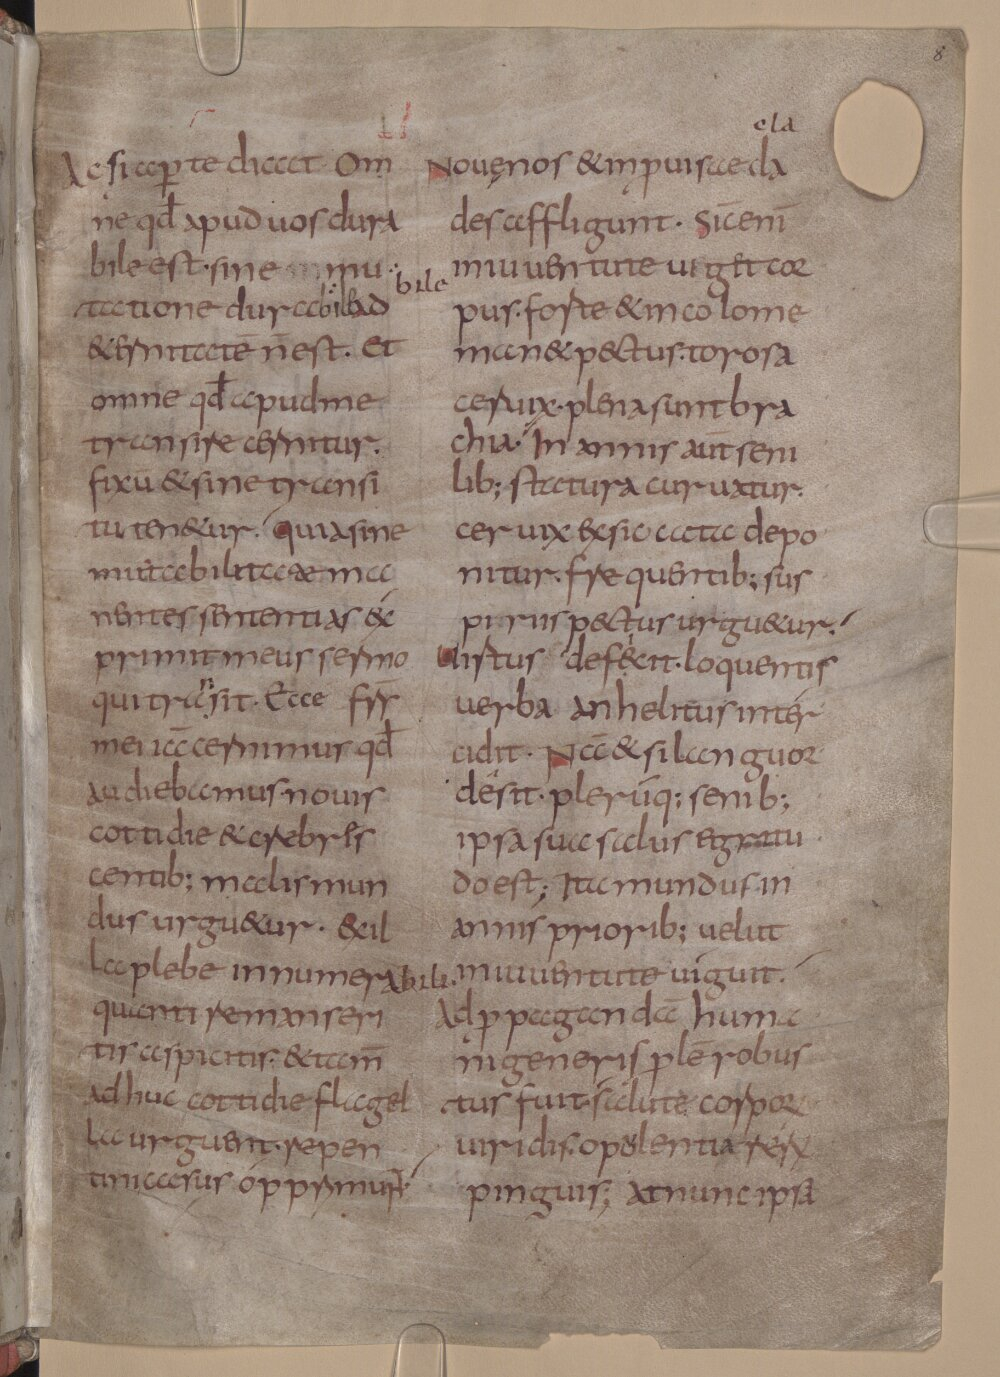 8
Ac si aꝑte diceret Om
ne qđ apud uos dura
bile est. sine inmu
tatione durabile ad
bile
&ernitatē n̄ est. Et
omne qđ apud me
transire cernitur.
fixū & sine transi
tu ten&ur. Quia sine
mutabilitate ma
nentes sententias ex
primit meus sermo
qui transit. Ecce frr̄
mei iā cernimus qđ
audiebamus. nouis
cottidie & crebris
centib; malis mun
dus urgu&ur. & il
la plebe innumerabili
quanti remanseri
tis aspicitis. & tam̄
adhuc cottidie flagel
la urguent. repen
tini casus opprimunt
cla
Nouę nos & inpuisae da
des affligunt. Sic̄ enī
in iuuentute uiget cor
pus. forte & incolome
man& pectus. torosa
ceruix. plena sunt bra
chia. In annis aut̄ seni
lib; statura curuatur.
ceruix exsicata depo
nitur. frequentib; sus
piriis pectus urgu&ur.
Uirtus deficit. loquentis
uerba anhelitus inter
cidit. Nā & si languor
desit. plerūq; senib;
ipsa sua salus egritu
do est; Ita mundus in
annis priorib; uelut
in iuuentute uiguit.
Ad ꝓpagandā huma
ni generis ꝓlē robus
tus fuit. salute corpor̄
uiridis. opulentia rerū
pinguis; At nunc ipsa